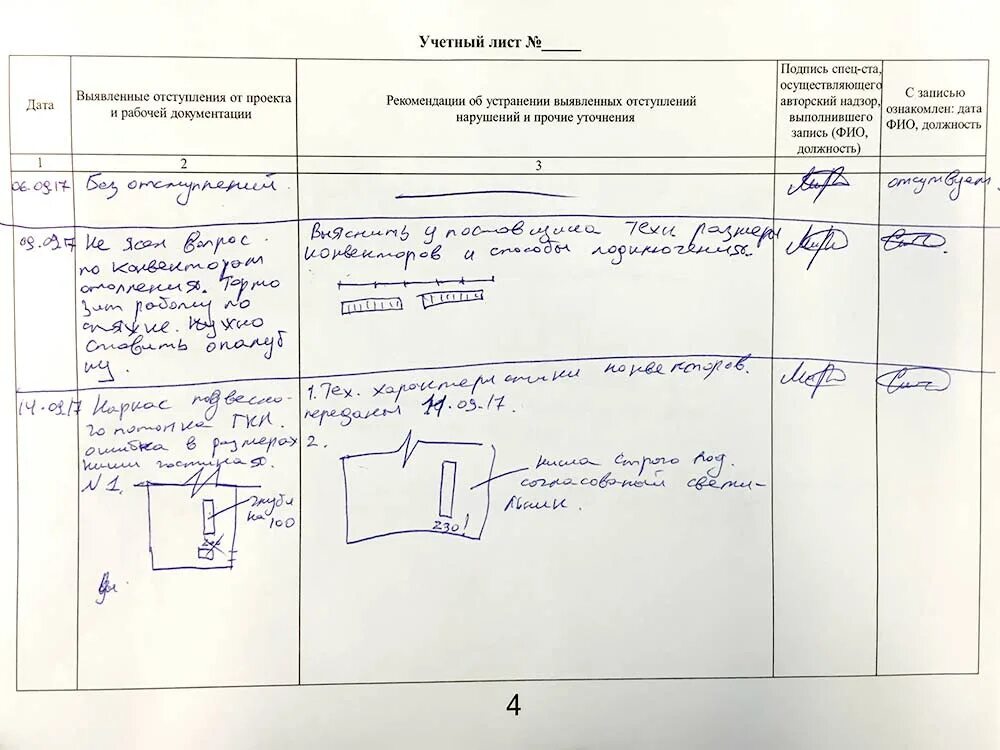 Учетный лист №_____
Дата
Выявленные отступления от проекта
и рабочей документации
Рекомендации об устранении выявленных отступлений
нарушений и прочие уточнения
Подпись спец-ста,
осуществляющего
авторский надзор,
выполнившего
запись (ФИО,
должность)
С записью
ознакомлен: дата
ФИО, должность
1
2
3
06.09.17
Без отступлений.
отсутствует.
09.09.17
Не ясен вопрос
по конвекторам
отопления. Тормо
зит работу по
стяжке. Нужно
ставить опалуб
ку.
Выяснить у поставщика техн размеры
конвекторов и способы подключения.
14.09.17
Каркас подвесно-
го потолка ГКЛ.
ошибка в размерах
ниши гостиная.
N 1.
глуби
на 100
1. Тех. характеристики конвекторов.
переданы 11.09.17.
2.
ниша строго под.
согласованый светиль-
ник.
230!
4